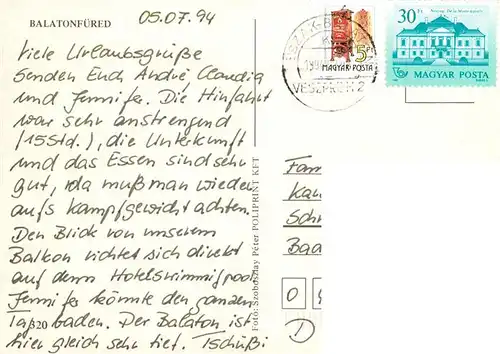 BALATONFÜRED
05.07.94
Viele Urlaubsgrüße
senden Euch André, Claudia
und Jennifer. Die Hinfahrt
war sehr anstrengend
(15Std.), die Unterkunft
und das Essen sind sehr
gut, da muß man wieder
aufs Kampfgewicht achten.
Den Blick von unserem
Balkon richtet sich direkt
auf dem Hotelswimmigpool
Jennifer könnte den ganzen
Tag baden. Der Balaton ist
hier gleich sehr tief. Tschüßi
320
Fotó: Szoboszlay Péter POLIPRINT KFT
VESZPRÉM 2
5Ft
MAGYAR POSTA
30Ft
MAGYAR POSTA
Fam
Kau
Schr
Baa
0
D